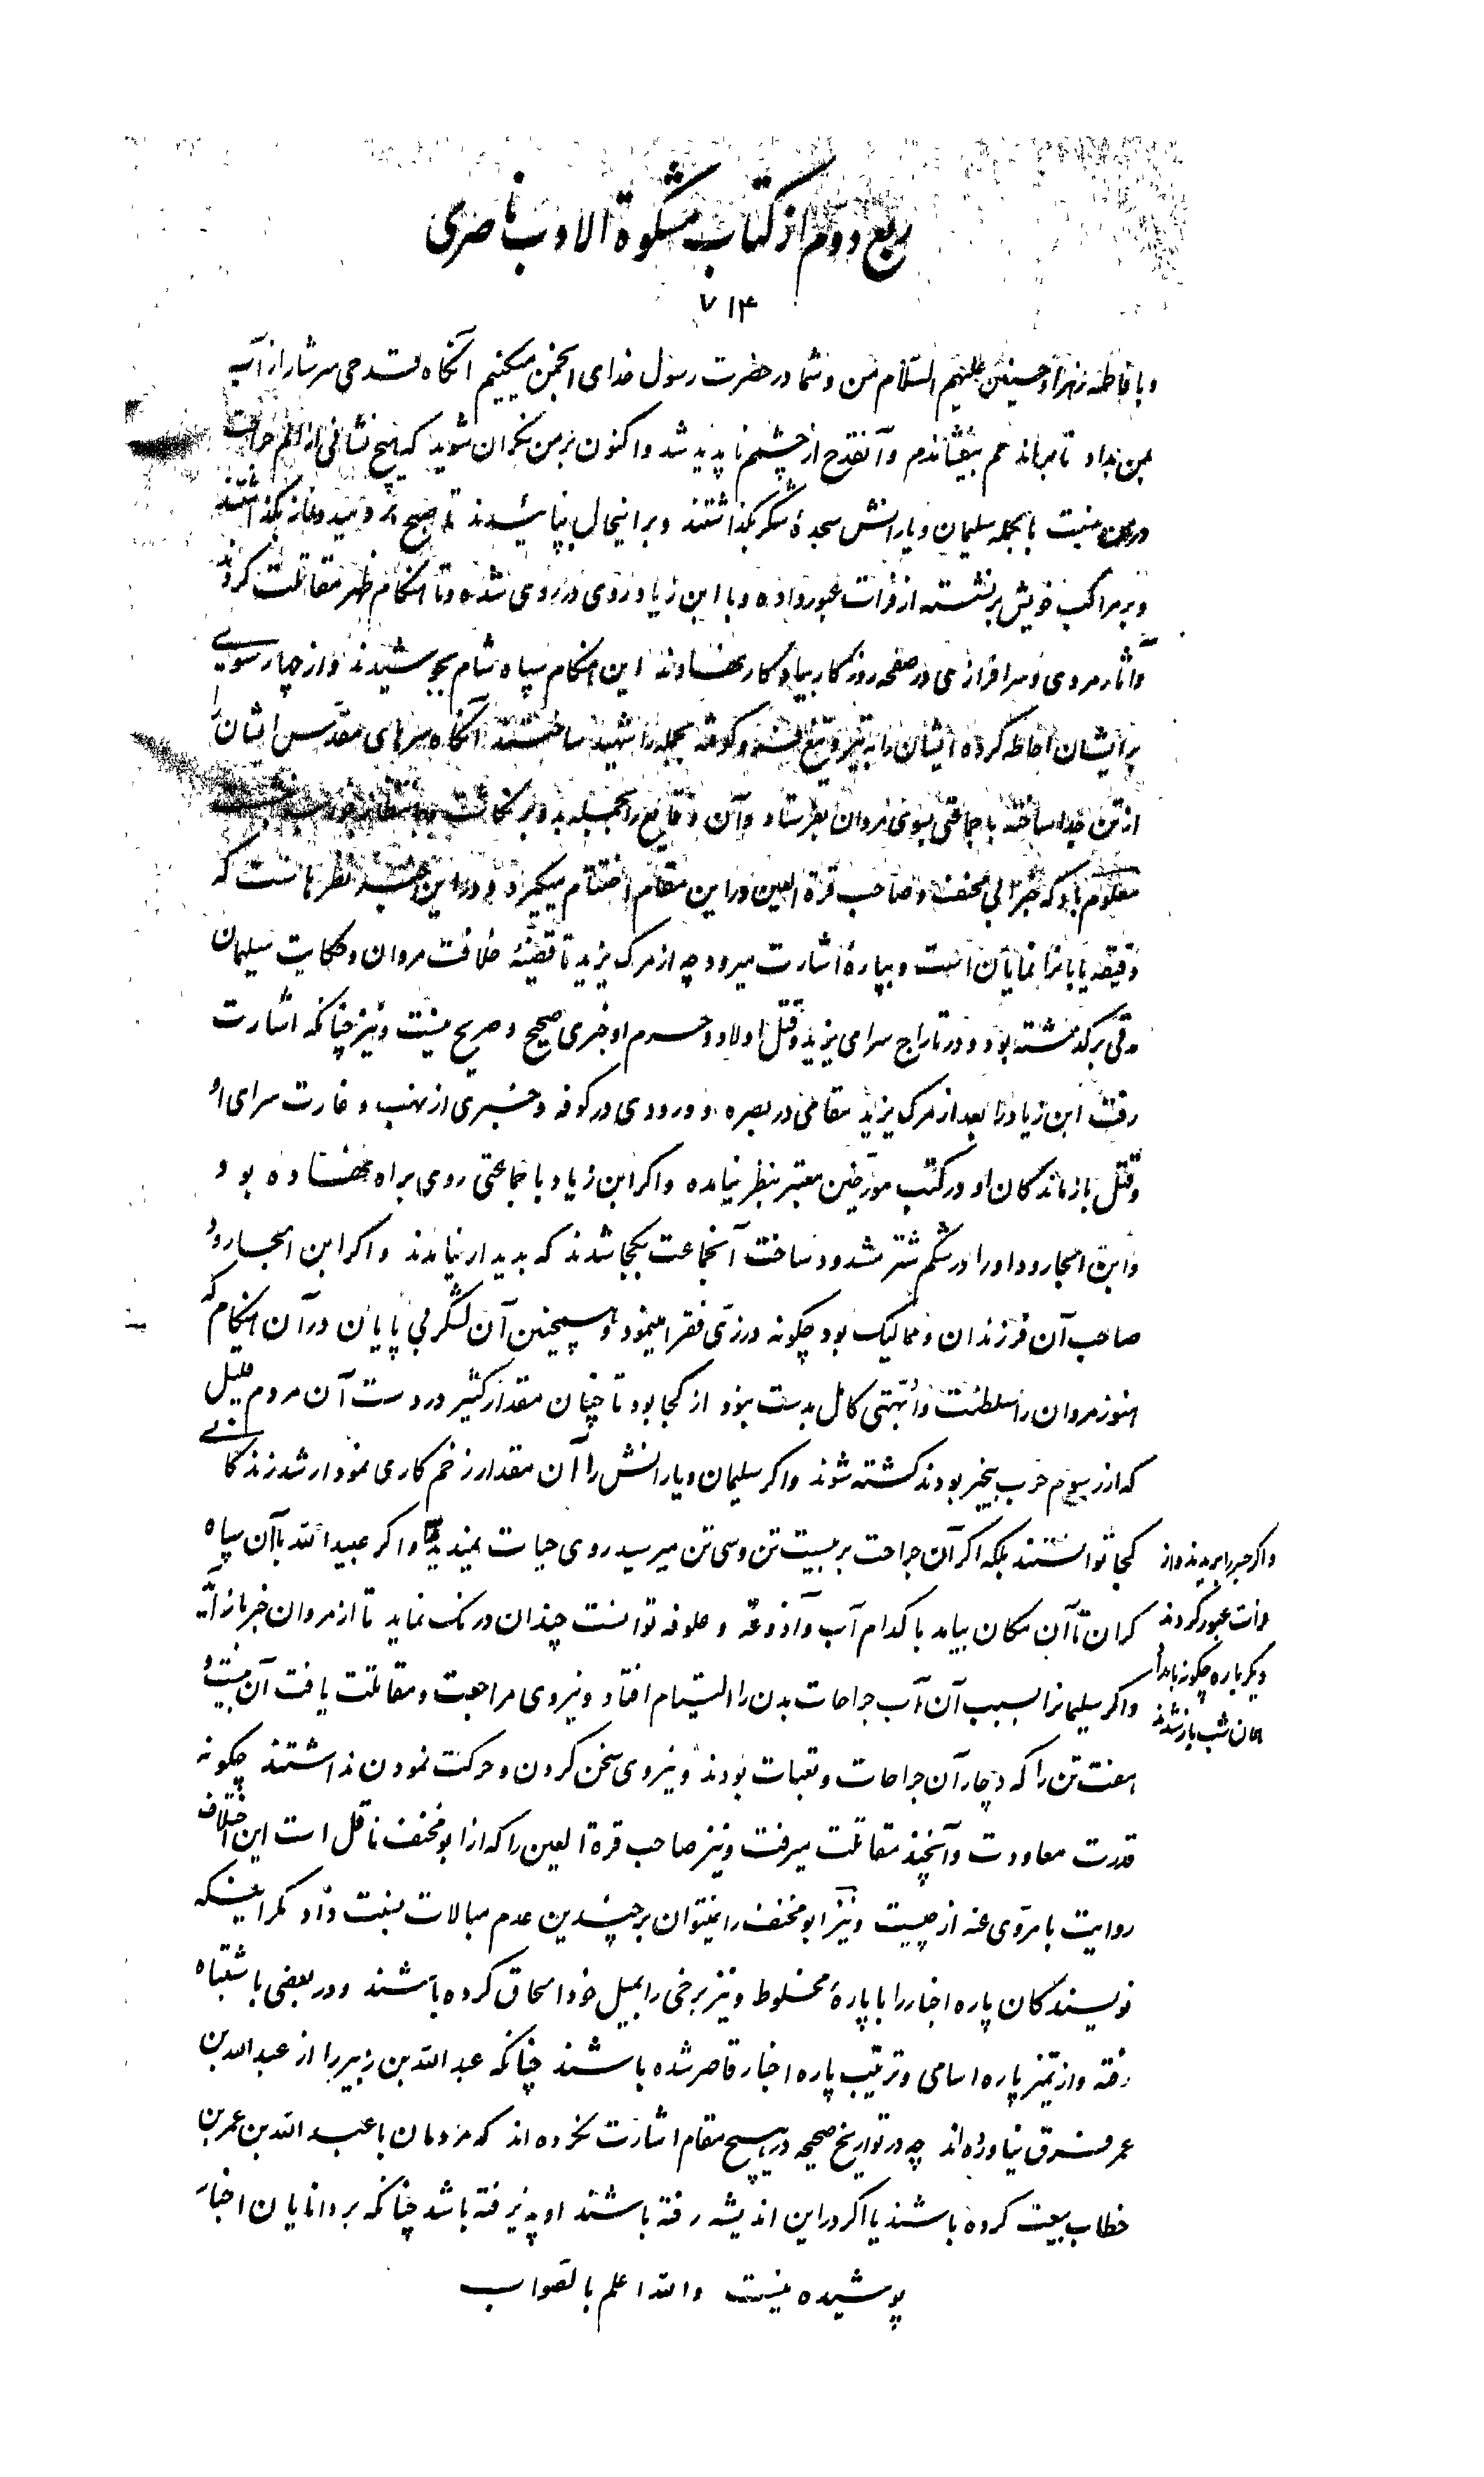 ربع دوم از کتاب مشکوة الادب ناصری
۷۱۴
و با فاطمه زهرا و حسنین علیهم السلام من و شما در حضرت رسول خدای انجمن میکنیم آنگاه قدحی سرشار از آب
بمن بداد تا بر اندامم بیفشاندم و آنقدح از چشم ناپدید شد و اکنون بر من نگران شوید که هیچ نشانی از الم جراحت
در من نیست بالجمله سلیمان و یارانش سجدهٔ شکر بگذاشتند و بر اینحال بپائیدند تا صبح بردمید و نماز بگذاشتند
و بر مراکب خویش برنشسته از فرات عبور داده و با ابن زیاد روی در روی شده و تا هنگام ظهر مقاتلت کردند
و آثار مردی و سرافرازی در صفحه روزگار بیادگار نهادند این هنگام سپاه شام بجوشیدند و از چهار سوی
بر ایشان احاطه کرده ایشان را به تیر و تیغ فرو کوفته بجمله را شهید ساختند آنگاه سرهای مقدس ایشان را
از تن جدا ساخته با جماعتی بسوی مروان بفرستاد و آن وقایع را بجمله بدو بر نگاشت
معلوم باد که خبر ابی مخنف و صاحب قرة العین در این مقام اختتام میگیرد و در این خبر نظرهاست که
دقیقه یابانرا نمایان است و بپارهٔ اشارت میرود چه از مرک یزید تا قضیهٔ خلافت مروان و حکایت سلیمان
مدتی برگذشته بود و در تاراج سرای یزید و قتل اولاد و حرم او خبری صحیح و صریح نیست و نیز چنانکه اشارت
رفت ابن زیاد را بعد از مرک یزید مقامی در بصره و ورودی در کوفه و خبری از نهب و غارت سرای او
و قتل بازماندگان او در کتب مورخین معتبر بنظر نیامده و اگر ابن زیاد با جماعتی روی براه نهاده بود
و ابن الجارود او را در شکم شتر مشدود ساخت آنجماعت بکجا شدند که پدیدار نیامدند و اگر ابن الجارود
صاحب آن فرزندان و ممالیک بود چگونه در زی فقرا مینمود و همچنین آن لشگر بی پایان در آن هنگام که
هنوز مروان را سلطنت و ابهتی کامل بدست نبود از کجا بود تا چنان مقدار کثیر در دست آن مردم قلیل
که از رسوم حرب بیخبر بودند کشته شوند و اگر سلیمان و یارانش را آن مقدار زخم کاری نمودار شد زندگانی
کجا توانستند بلکه اگر آن جراحت بر بیست تن و سی تن میرسید روی حیات نمیدیدند و اگر عبیدالله با آن سپاه
گران تا آن مکان بیامد با کدام آب و آذوقه و علوفه توانست چندان درنک نماید تا از مروان خبر باز آید
و اگر جسر را ببریدند و از
فرات عبور کردند
دیگر باره چگونه بامداد
همان شب باز شدند
و اگر سلیمانرا بسبب آن آب جراحات بدن را التیام افتاد و نیروی مراجعت و مقاتلت یافت آن بیست و
هفت تن را که دچار آن جراحات و تعبات بودند و نیروی سخن کردن و حرکت نمودن نداشتند چگونه
قدرت معاودت و آنچند مقاتلت میرفت و نیز صاحب قرة العین را که از ابو مخنف ناقل است این اختلاف
روایت با مروی عنه از چیست و نیز ابو مخنف را نمیتوان بر چندین عدم مبالات نسبت داد مگر اینکه
نویسندگان پاره اخبار را با پارهٔ مخلوط و نیز برخی را بمیل خود الحاق کرده باشند و در بعضی باشتباه
رفته و از تمیز پاره اسامی و ترتیب پاره اخبار قاصر شده باشند چنانکه عبدالله بن زبیر را از عبدالله بن
عمر فرق نیاورده‌اند چه در تواریخ صحیحه در هیچ مقام اشارت نکرده اند که مردمان با عبدالله بن عمر بن
خطاب بیعت کرده باشند یا اگر در این اندیشه رفته باشند او پذیرفته باشد چنانکه بر دانایان اخبار
پوشیده نیست والله اعلم بالصواب